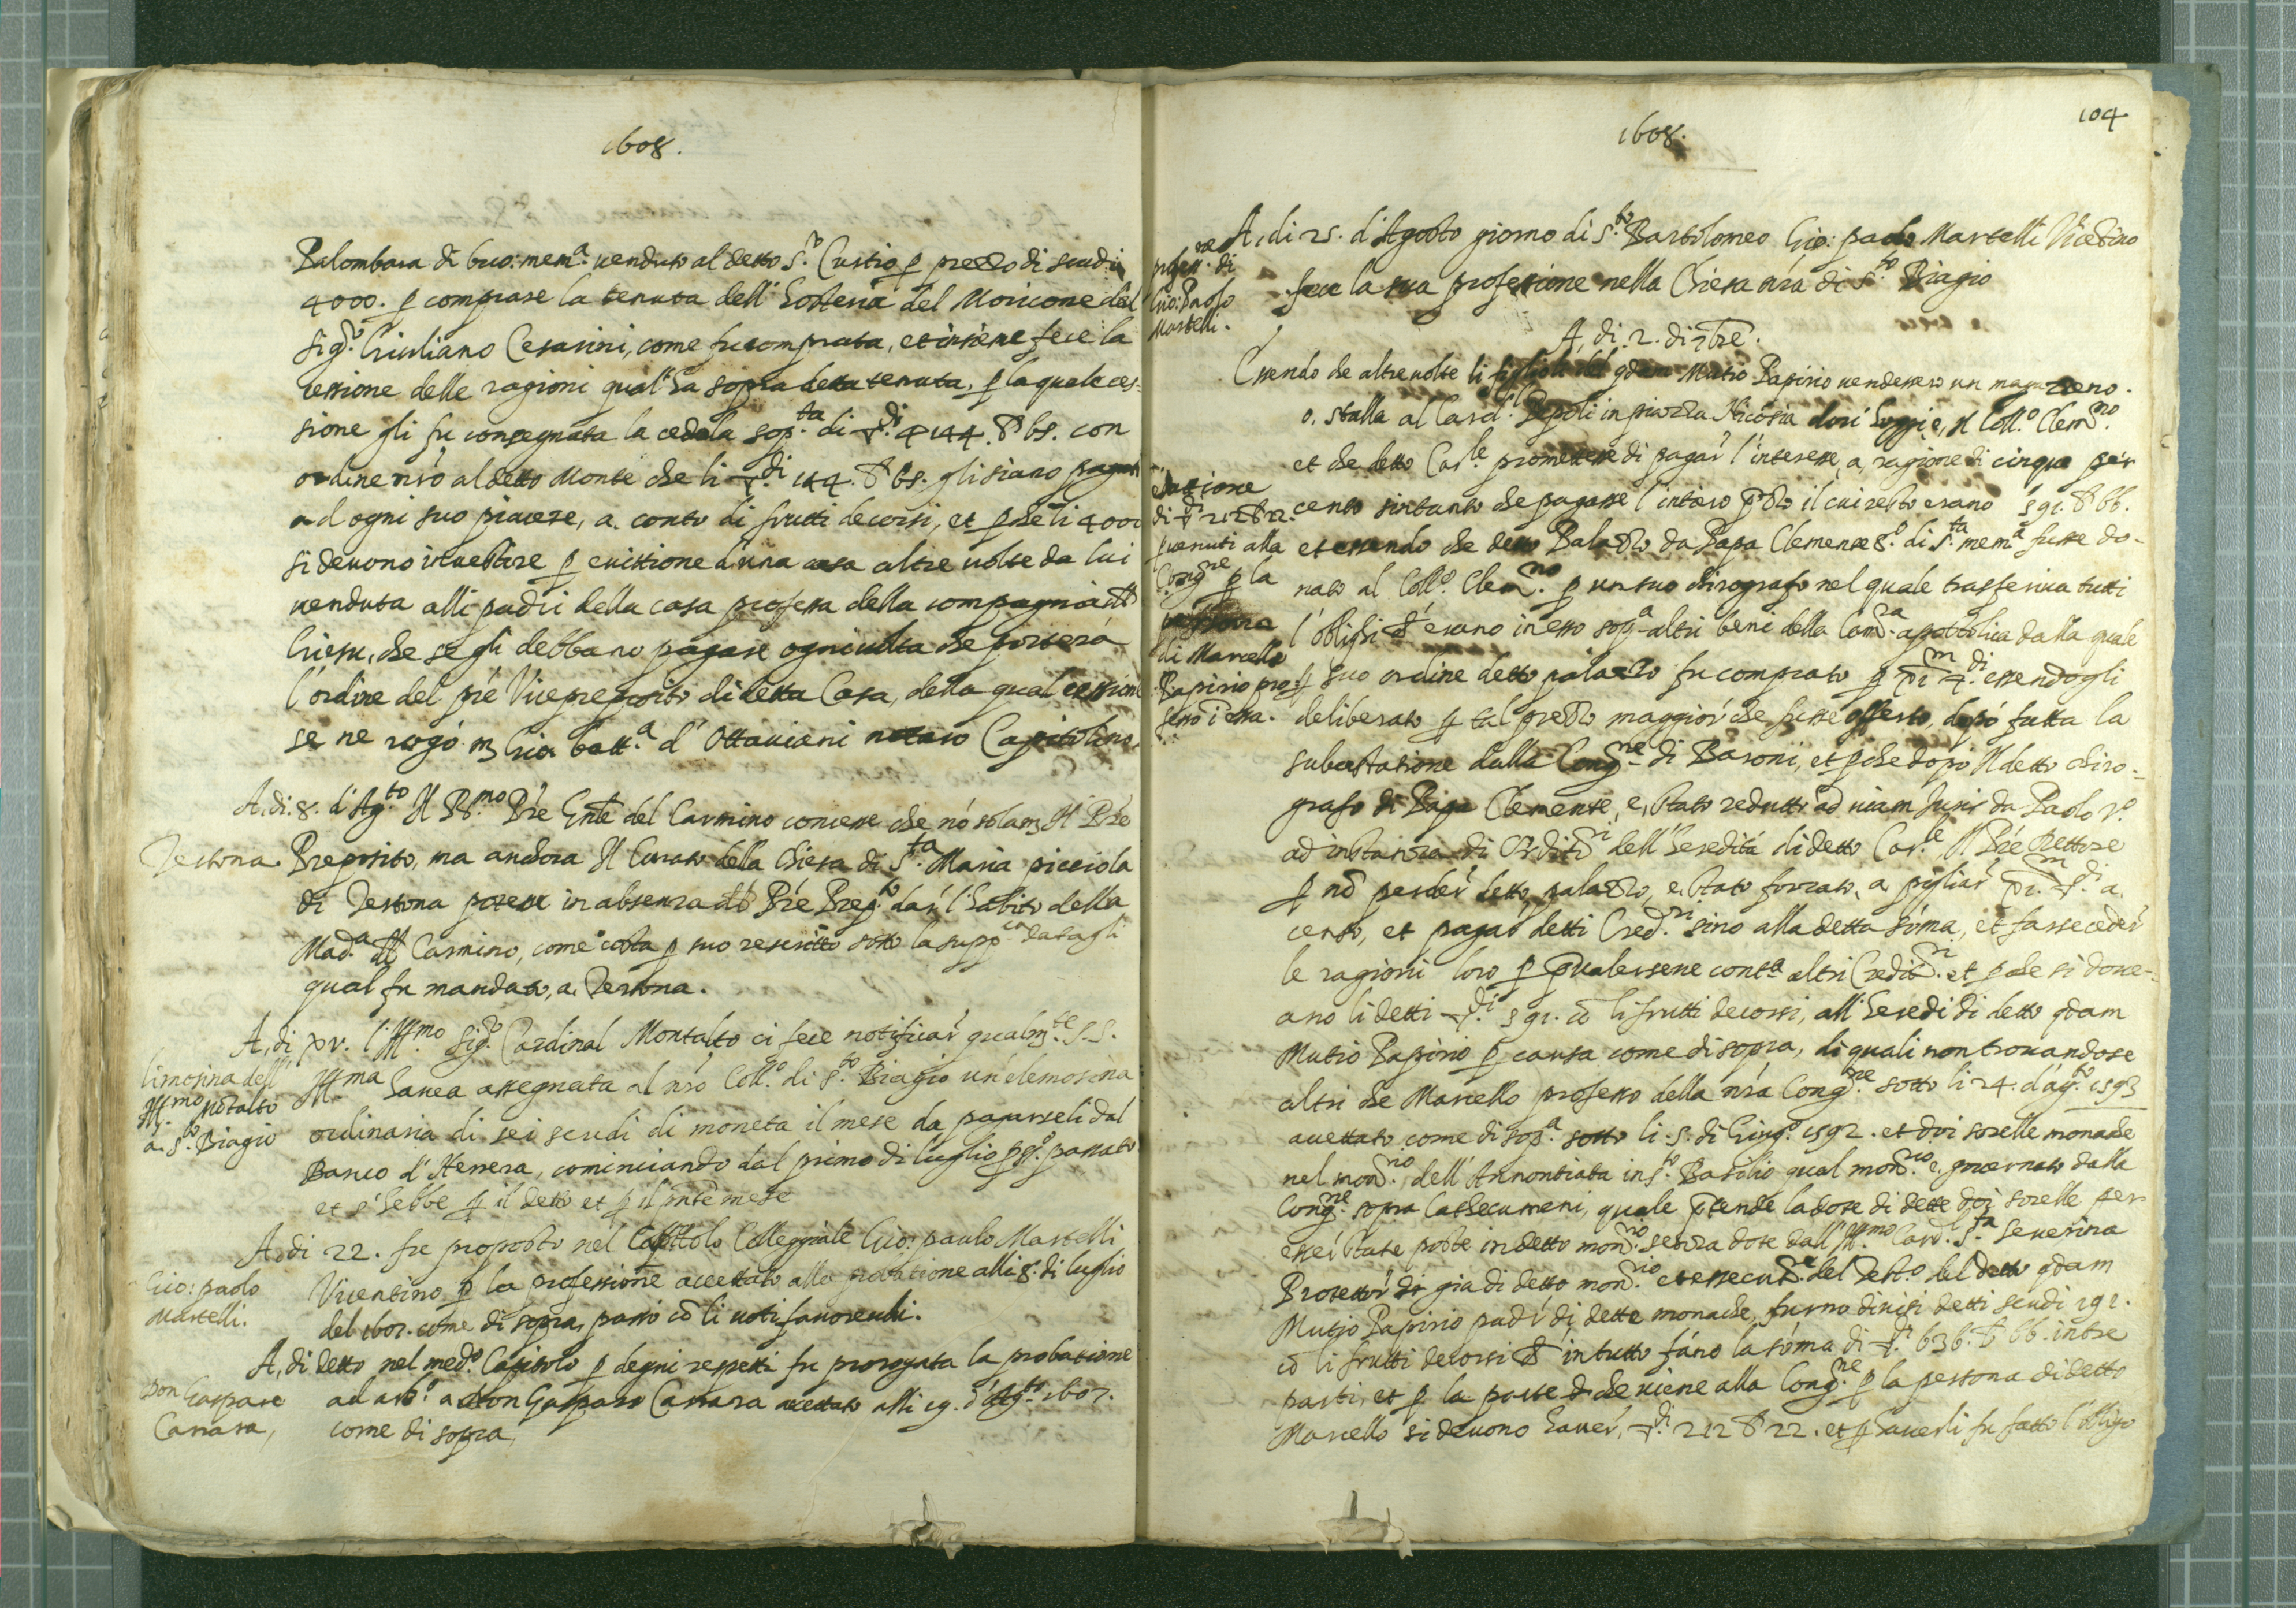 1608.
Palombara di buo: mem.ª venduto al detto S.r Curtio p prezzo di scudi
4000. p comprare la tenuta dell' Hosteria del Moricone dal
sig.ro Giuliano Cesarini, come fu comprata, et insieme fece la
cessione delle ragioni qual' ha sopra detta tenuta, p la quale ces-
sione gli fu consegnata la cedola sop.ta di di 4144. 65. con
ordine nrõ al detto Monte che li di 144. 65. gli siano pagati
ad ogni suo piacere, a conto di frutti decorsi, et pche li 4000
si devono investire p evittione d'una casa altre volte da lui
venduta alli padri della casa professa della compagnia di
Giesu, che se gli debbano pagare ogni volta che porterà
l'ordine del prè Viceprepositо di detta Casa, della qual cessione
se ne rogó m Gio. batt.ª d' Ottaviani notaro Capitolino.
A, di 8. d'Ag.to Il R.mo Prè Gnte del Carmino concesse che nó solam Il Prè
Testona
Preposito, ma anchora Il Curato della Chiesa di S.ta Maria picciola
di Testona potesse in absenza Prè Prep.to dar l'habito della
Mad.ª Carmino, come costa p suo rescritto sotto la supp.ca datagli
qual fu mandato, a, Testona.
A, di xv. l'Ill.mo Sig.r Cardinal Montalto ci fece notificar qualm.te S.S.
limosina dell'
Ill.mo Môtalto
a. S.to Biagio
Ill.ma havea assegnata al nrò Coll.o di S.to Biagio un'elemosina
ordinaria di sei scudi di moneta il mese da pagarseli dal
Banco d'Herrera, cominciando dal primo di luglio passato
et s'hebbe p il detto et p il pnte mese
A, di 22. fu proposto nel Capitolo Collegiale Gio: paulo Martelli
Gio: paolo
Martelli.
Vicentino p la professione accettato alla probatione alli 8. di luglio
del 1607. come di sopra, passò cò li voti favorevoli.
A, di detto nel med.o Capitolo p degni rispetti fu prorogata la probatione
Don Gaspare
Carrara,
ad arb.o a Don Gasparo Carrara accettato alli 19. d'Ag.to 1607.
come di sopra
104
1608.
A, di 25. d'Agosto giorno di S.to Bartolomeo Gio: paolo Martelli Vicetino
profess.ne di
Gio: Paolo
Martelli.
fece la sua professione nella Chiesa nrá di S.to Biagio
A, di 2. di 7bre.
Essendo che altre volte li figlioli del qdam Mutio Papirio vendessero un magazzeno.
o. stalla al Card.l Pepoli in piazza Nicosia dov' hoggi e, Il Coll.o Clem.no
et che detto Car.le promettesse di pagar l'interesse, a, ragione di cinque per
di 212 22.
pvenuti alla
Cong.ne p la
di Marcello
Papirio pro-
fesso i essa.
cento sintanto che pagasse l'intiero il cui resto erano 591. 66.
et essendo che detto Palazzo da Papa Clemente 8.o di S.ta mem.ª fusse do-
nato al Coll.o Clem.no p un suo chirografo nel quale trasferiva tutti
l'oblighi erano in esso sop.ª altri beni della Cam.ra apostolica dalla quale
p suo ordine detto palazzo fu comprato p essendogli
deliberato p tal prezzo maggior che fusse offerto, dopó fatta la
subastatione dalla Cong.ne di Baroni, et pche dopó Il detto chiro-
grafo di Papa Clemente, e, stato redutto ad viam Iuris da Paolo V.o
ad instanza di Credit.ri dell'heredità di detto Car.le Il Prè Rettore
p nò perder detto palazzo, e, stato forzato, a, pigliar a
cento, et pagar detti Cred.ri sino alla detta sóma, et farse ceder
le ragioni loro p pvalersene cont.ª altri Credit.ri et pche si dove-
ano li detti di 591. cò li frutti decorsi, all'heredi di detto qdam
Mutio Papirio p causa come di sopra, di quali non trovandose
altri che Marcello professo della nrá Cong.ne sotto li 24. d'ag.to 1593
accettato come di sop.ª sotto li .5. di Giug.o 1592. et doi sorelle monache
nel mon.rio dell'Annontiata in S.to Basilio qual mon.rio e, governato dalla
Cong.ne sopra Cathecumeni, quale ptende la dote di dette doi sorelle per
esser state poste in detto mon.rio senza dote dall'Ill.mo Card. S.ta Severina
Protettor di gia di detto mon.rio et essecut.re del Test.o del detto qdam
Mutio Papirio padr di dette monache, furno divisi detti scudi 591.
cò li frutti decorsi in tutto fáno la sóma di di 636. 66. in tre
parti, et p la parte che viene alla Cong.ne p la persona di detto
Marcello si devono haver, di 212 22. et p haverli fu fatto l'obligo